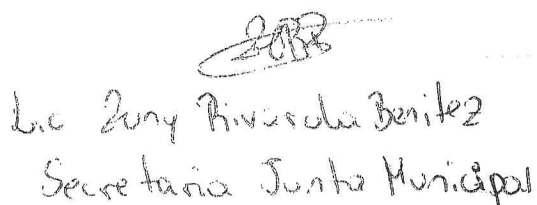 Lic Zuny Rivarola Benitez
Secretaria Junta Municipal